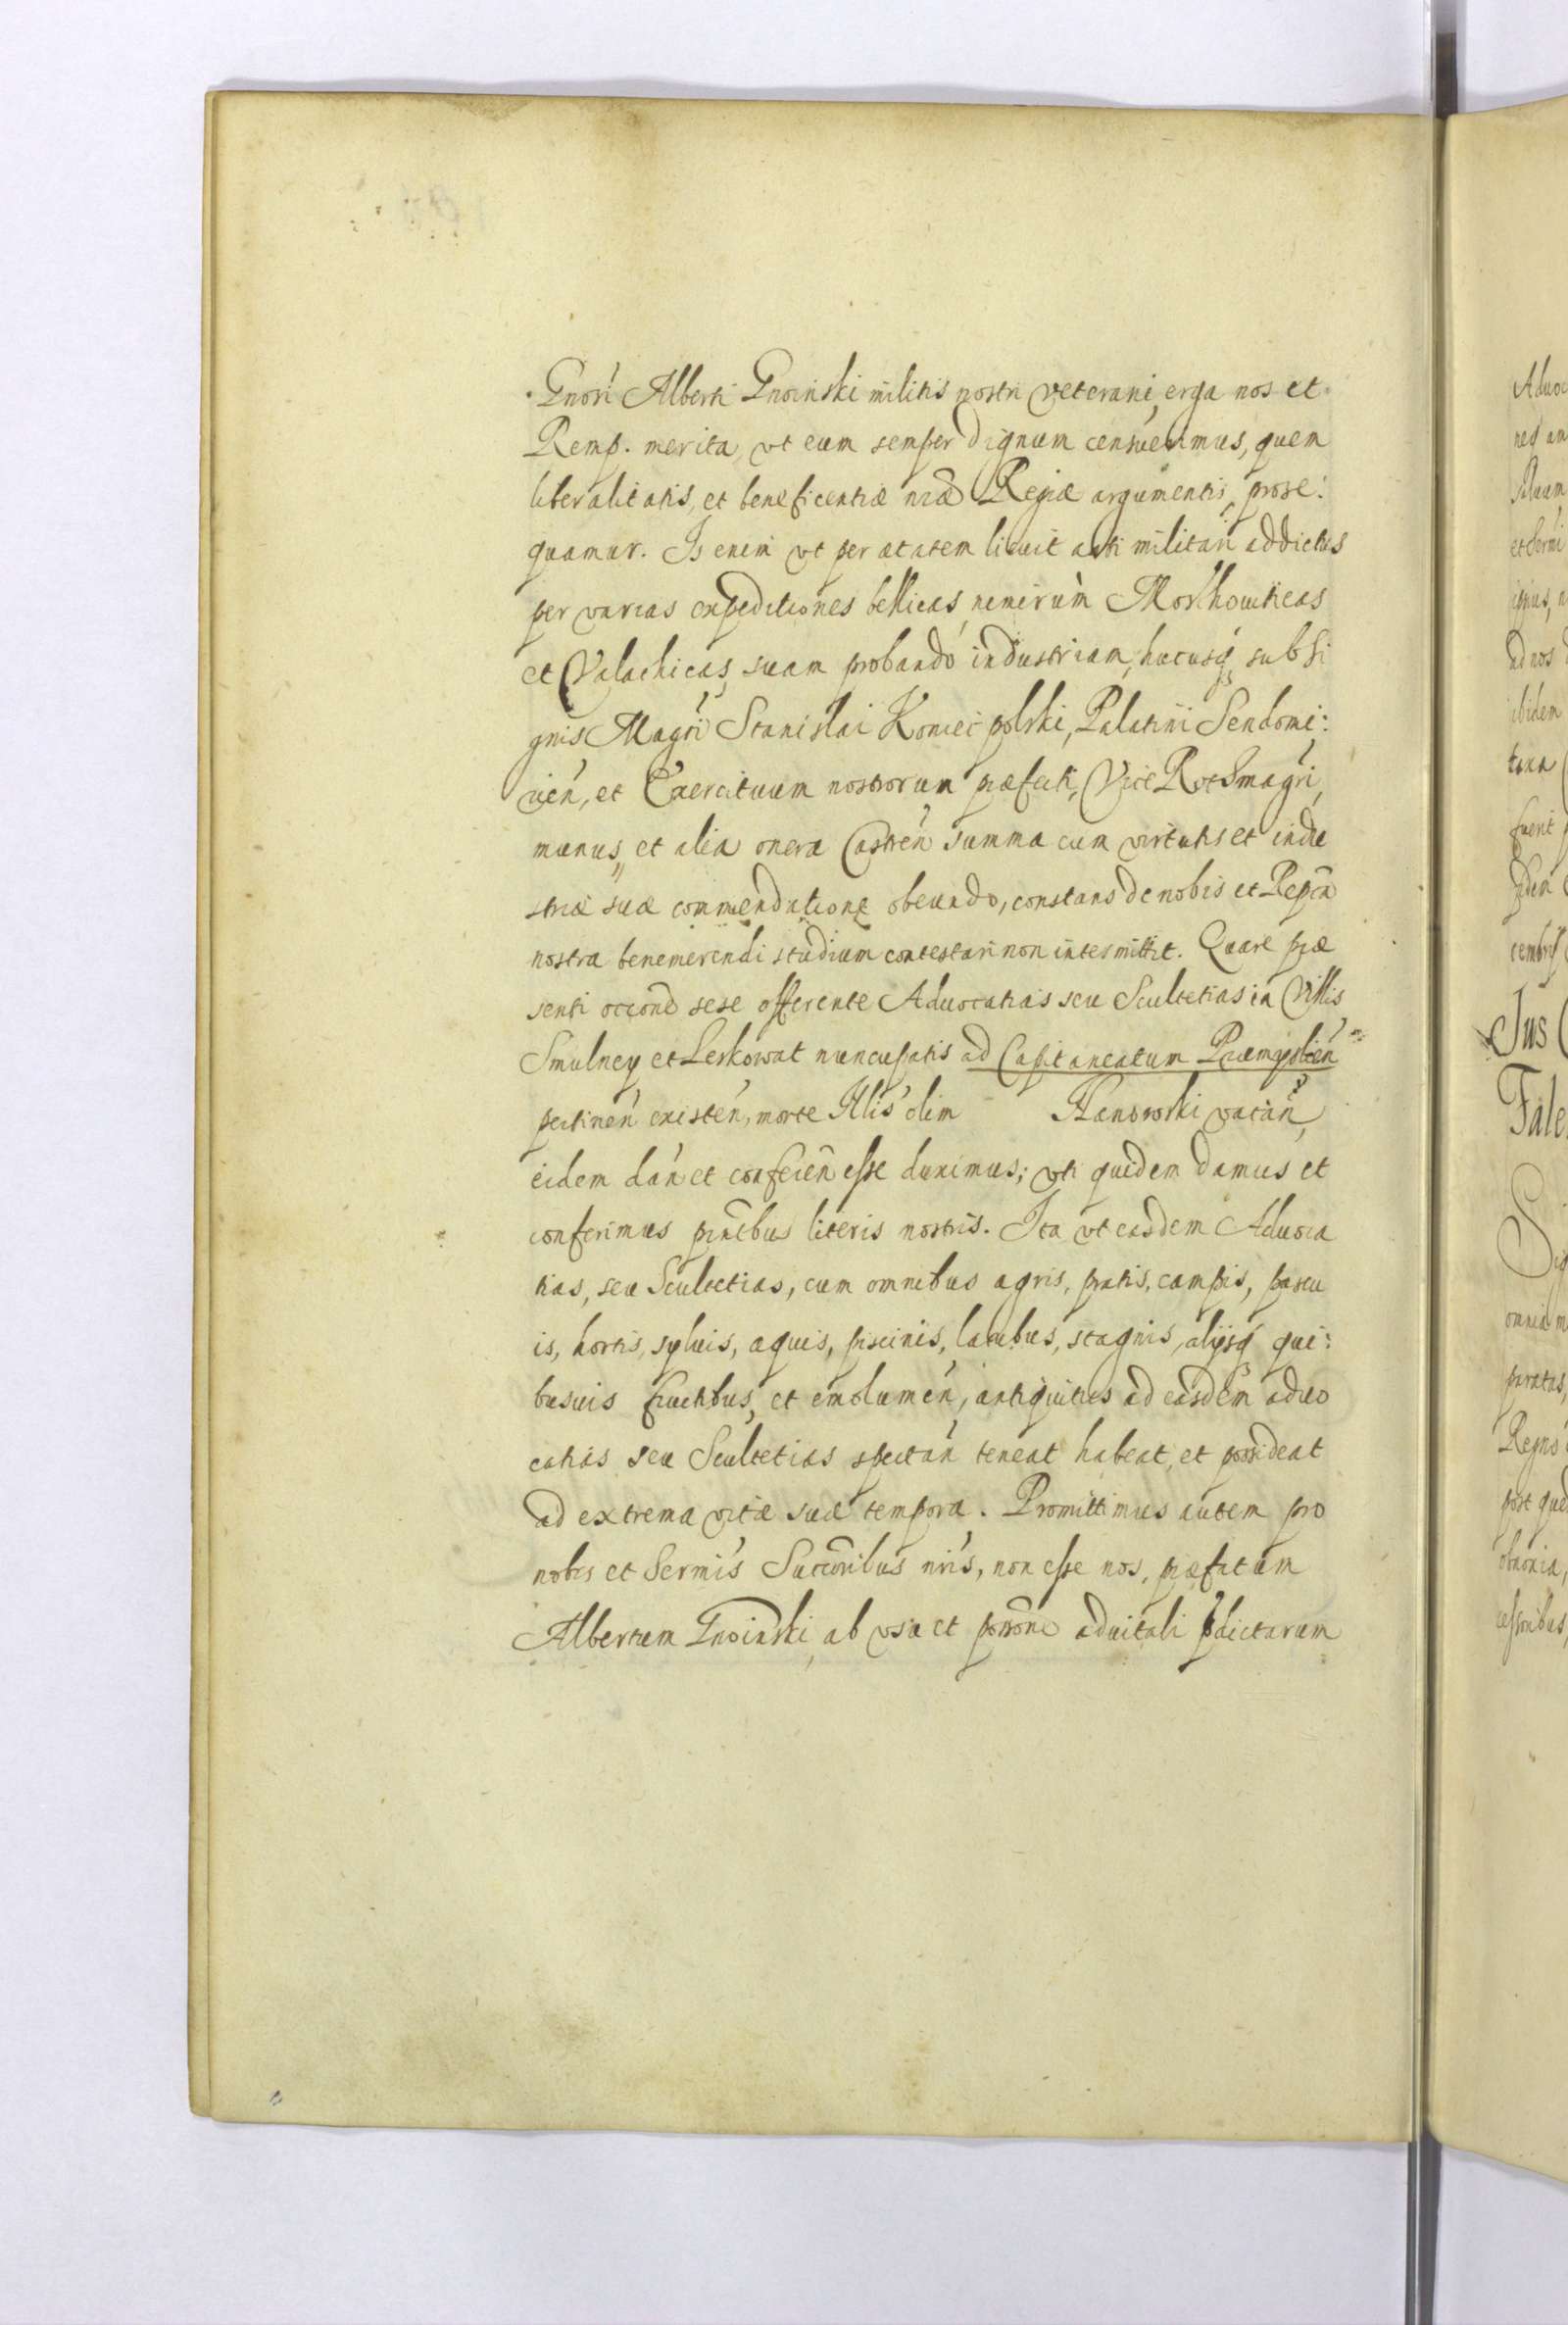 Gnosi Alberti Gnoinski militis nostri veterani, erga nos et
Remp. merita, vt eum semper dignum censuerimus, quem
liberalitatis, et beneficentiæ nræ Regiæ argumentis, prose:
quamur. Is enim vt per ætatem licuit arti militari addictus
per varias expeditiones bellicas, nimirùm Moschouiticas
et Valachicas, suam probando industriam, hucusq sub si
gnis Magci Stanislai Koniecpolski, Palatini Sendomi:
rien, et Exercituum nostrorum præfecti, Vice Rotsmagri,
munus, et alia onera Castren summa cum virtutis et indu
striæ suæ commendatione obeundo, constans de nobis et Repca
nostra benemerendi studium contestari non intermittit. Quare præ
senti occone sese offerente Aduocatias seu Scultetias in Villis
Smulney et Leskowat nuncupatis ad Capitaneatum Præmyslien
pertinen existen, morte Nlis olim Hanowski vacan,
eidem dan et conferen esse duximus; vti quidem damus et
conferimus pntibus literis nostris. Ita vt easdem Aduoca
tias, seu Scultetias, cum omnibus agris, pratis, campis, pascu
is, hortis, syluis, aquis, piscinis, lacubus, stagnis, alijsq qui:
busuis fructibus, et emolumen, antiquitus ad easdem aduo
catias seu Scultetias spectan teneat habeat, et possideat
ad extrema vitæ suæ tempora. Promittimus autem pro
nobis et Sermis Succoribus nris, non esse nos, præfatum
Albertum Gnoinski, ab vsu et possone aduitali pdictarum
Aduoc
et Sermi
ad nos
ibidem
fuerit
Jus
omnia m
paratas,
Regno
post que
obnoxia,
cessoribus,